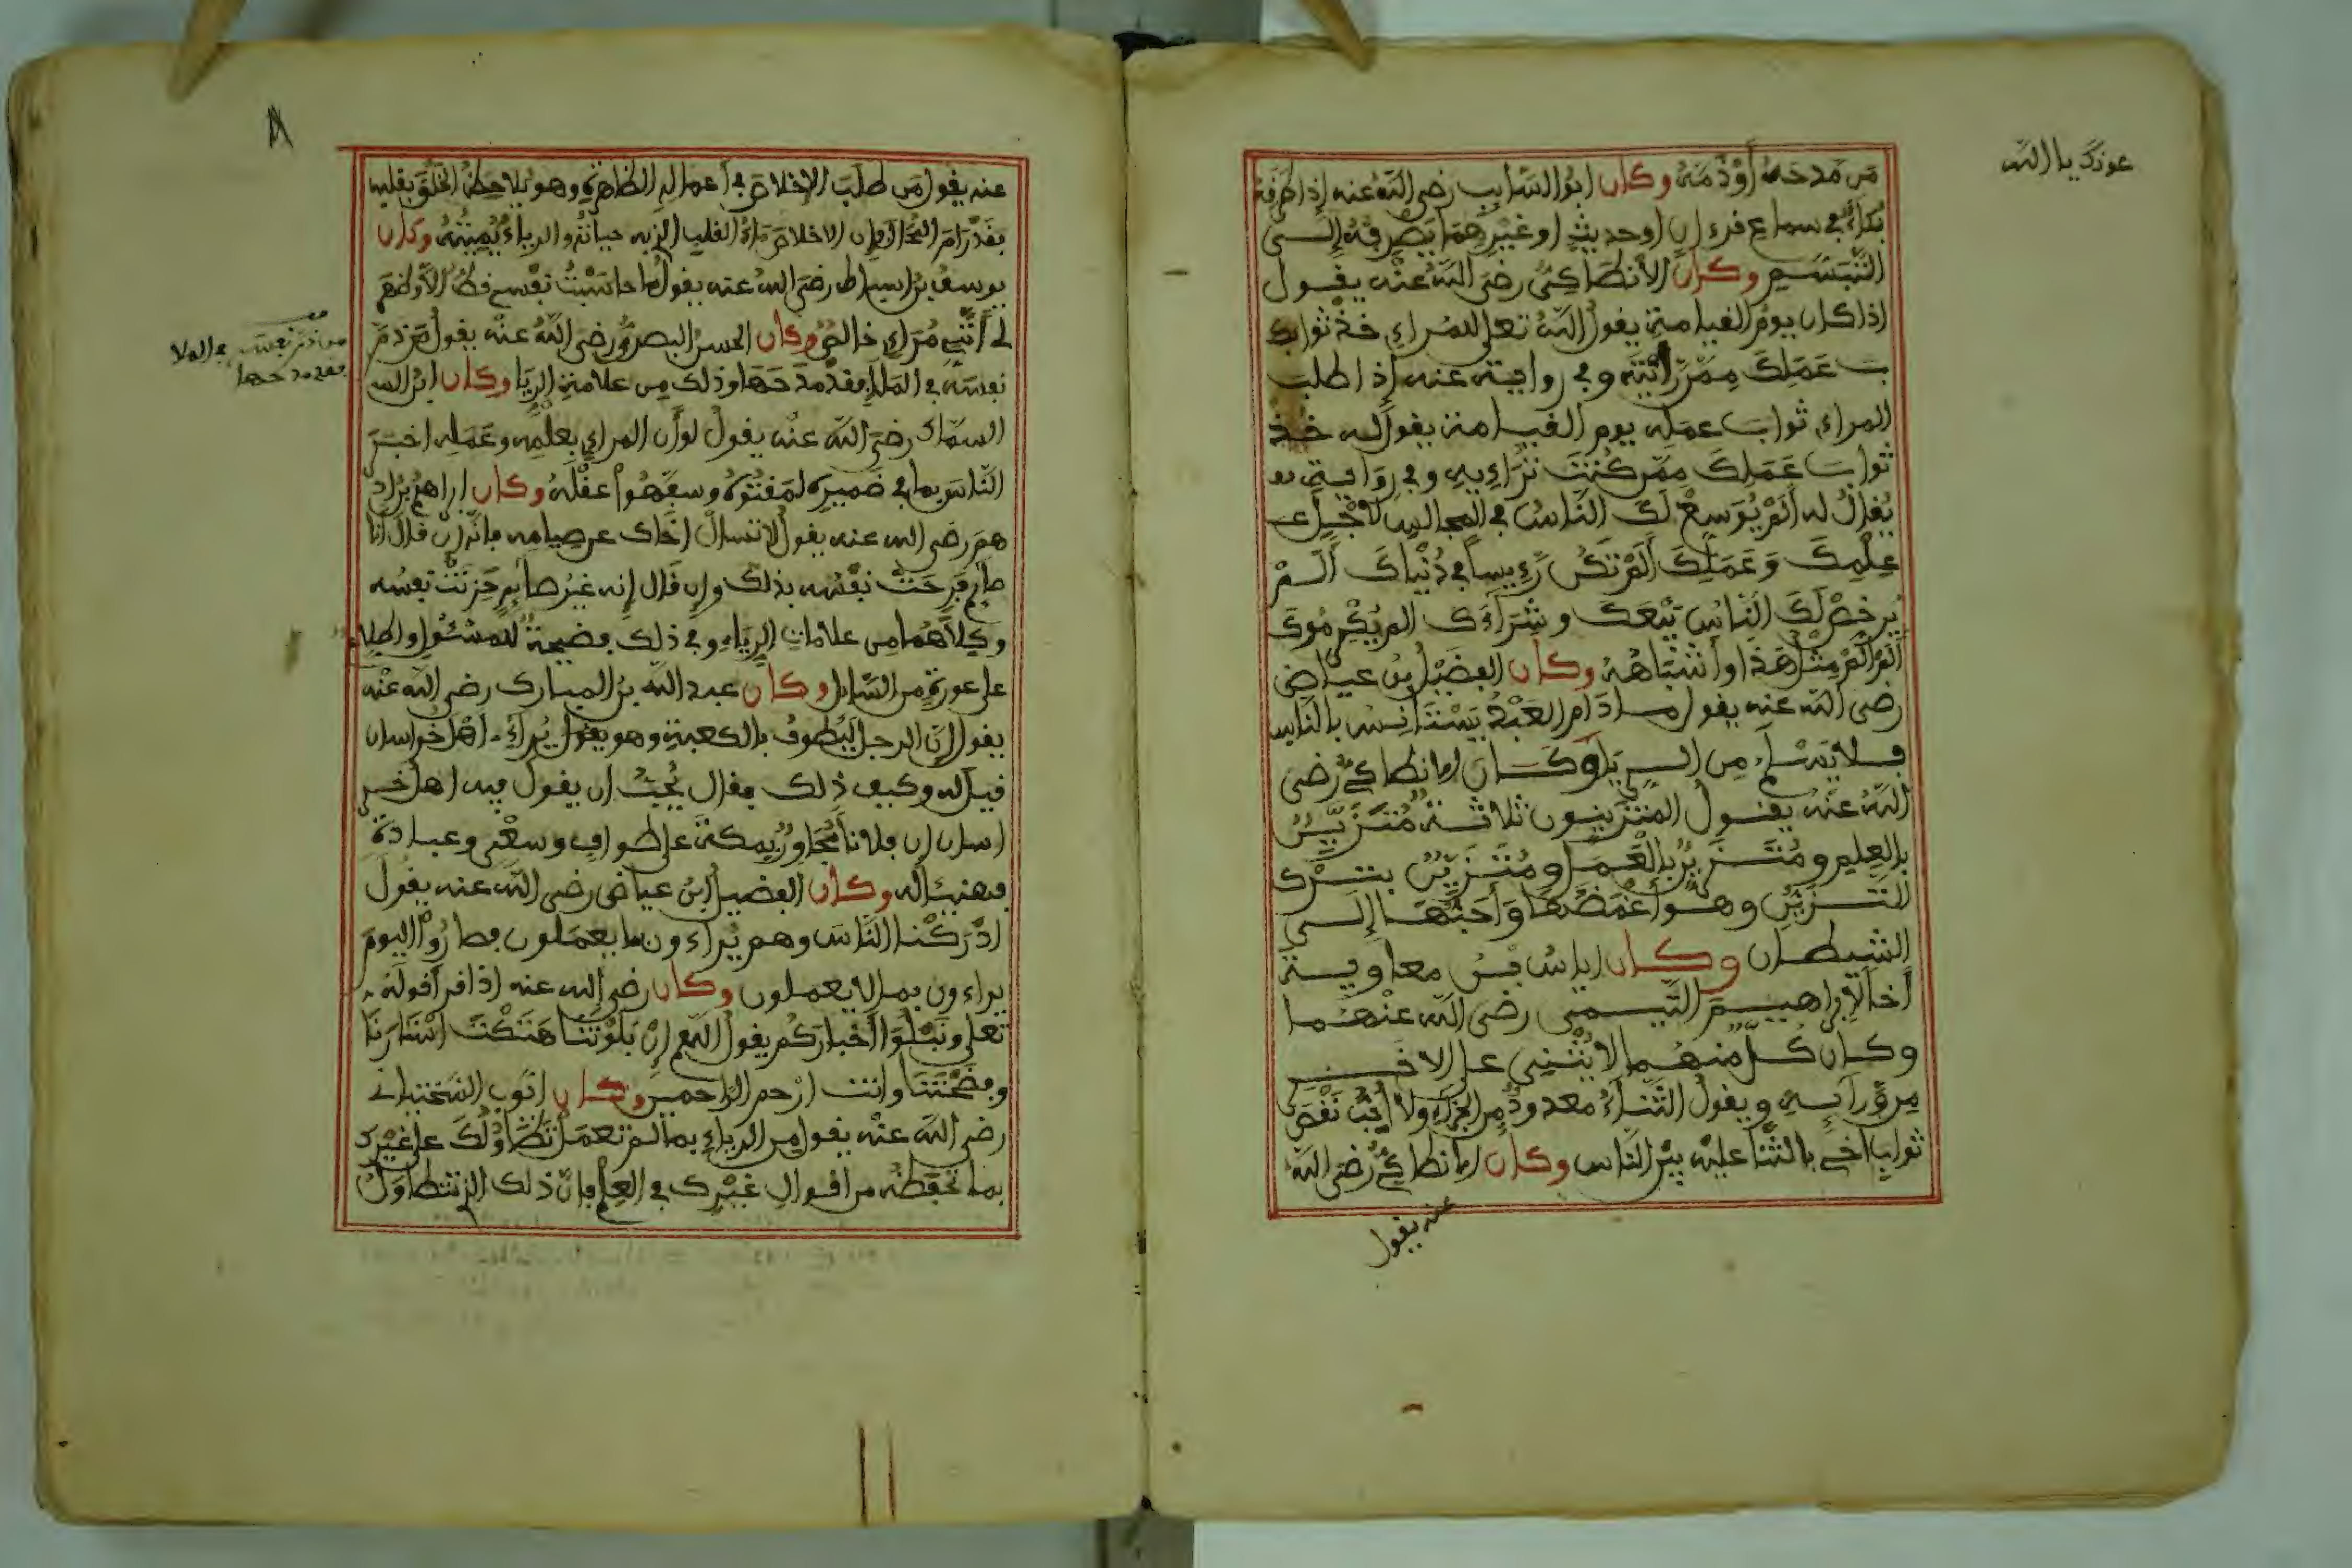 عونك يا الله
من مدحه أو ذمه وكان ابو السايب رضي الله عنه إذا طرفه
بكاء في سماع قرءان او حديث او غيرهما يصرفه إلى
التبسم وكان الأنطاكي رضي الله عنه يقول
اذا كان يوم القيامة يقول الله تعلى للمراءي خذ ثواب
عملك ممن رأيته وفي رواية عنه إذا طلب
المراءي ثواب عمله يوم القيامة يقول له خذ
ثواب عملك ممن كنت تراءيه وفي رواية
يقال له ألم يوسع لك الناس في المجالس لأجل
علمك وعملك ألم تكن رءيسا في دنياك ألم
يرخص لك الناس بيعك وشراءك الم يكرموك
ألم ألم مثل هذا وأشباهه وكان الفضيل بن عياض
رضي الله عنه يقول ما دام العبد يستانس بالناس
فلا يسلم من الريا وكان الانطاكي رضي
الله عنه يقول المتزينون ثلاثة متزين
بالعلم ومتزين بالعمل ومتزين بترك
التزين وهو أغمضها وأحبها إلى
الشيطان وكان اياس بن معاوية
أخا لإبراهيم التيمي رضي الله عنهما
وكان كل منهما لا يثني على الاخر
من ورآيه ويقول الثناء معدود من الجزاء ولا أحب نقص
ثواب اخي بالثنا عليه بين الناس وكان الانطاكي رضي الله
عنه يقول
عنه يقول من طلب الإخلاص في أعماله الظاهرة وهو يلاحظ الخلق بقلبه
فقد رام المحال لان الاخلاص ماء القلب الذي به حياته والرياء يميته وكان
يوسف بن اسباط رضي الله عنه يقول ما حاسبت نفسي قط الا وظهر
لي أنني مراء خالص وكان الحسن البصري رضي الله عنه يقول من ذم
نفسه في الملا فقد مدحها وذلك من علامة الريا وكان ابن الس
السماك رضي الله عنه يقول لو أن المراءي بعلمه وعمله اخبر
الناس بما في ضميره لمقتوه وسفهوا عقله وكان ابراهيم بن اد
هم رضي الله عنه يقول لا تسأل أخاك عن صيامه فانه إن قال أنا
صايم فرحت نفسه بذلك وإن قال إنه غير صايم حزنت نفسه
وكلاهما من علامات الرياء وفي ذلك فضيحة للمسئول واطلاع
على عورته من السايل وكان عبد الله بن المبارك رضي الله عنه
يقول إن الرجل ليطوف بالكعبة وهو يراءي اهل خراسان
قيل له وكيف ذلك فقال يحب ان يقول فيه اهل خر
اسان إن فلانا مجاور بمكة على طواف وسعي وعبادة
فهنيئا له وكان الفضيل ابن عياض رضي الله عنه يقول
ادركنا الناس وهم يراءون بما يعملون فصاروا اليوم
يراءون بما لا يعملون وكان رضي الله عنه اذا قرأ قوله
تعلى ونبلوا أخباركم يقول اللهم إن بلوتنا هتكت استارنا
وفضحتنا وانت ارحم الراحمين وكان ايوب السختياني
رضي الله عنه يقول من الرياء بما لم تعمل تطاولك على غيرك
بما تحفظه من اقوال غيرك في العلم فان ذلك الذي تتطاول
من ذم نفسه في الملا
فقد مدحها